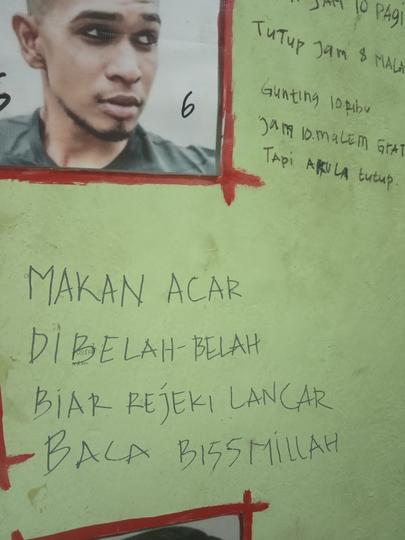 JAM 10 PAGI
TUTUP Jam 8 MALA
Gunting 10 Ribu
Jam 10.malEM GRAT
Tapi AKULA tutup.
5
6
MAKAN ACAR
DI BELAH-BELAH
BIAR REJEKI LANCAR
BACA BISSMILLAH